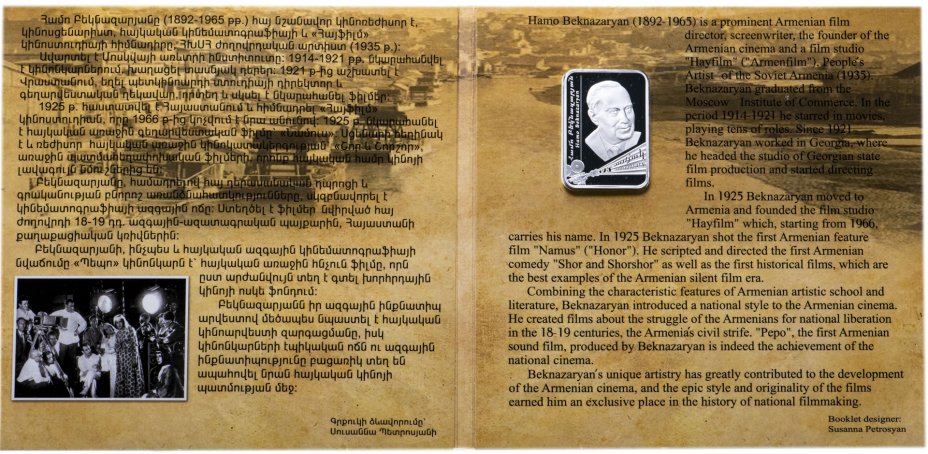 Համո Բեկնազարյանը (1892-1965 թթ.) հայ նշանավոր կինոռեժիսոր է,
կինոսցենարիստ, հայկական կինեմատոգրաֆիայի և «Հայֆիլմ»
կինոստուդիայի հիմնադիրը, ՀԽՍՀ ժողովրդական արտիստ (1935 թ.):
Ավարտել է Մոսկվայի առևտրի ինստիտուտը: 1914-1921 թթ. նկարահանվել
է կինոնկարներում, խաղացել տասնյակ դերեր: 1921 թ-ից աշխատել է
Վրաստանում, եղել պետկինոյի ստուդիայի դիրեկտոր և
գեղարվեստական ղեկավար, որտեղ և սկսել է նկարահանել ֆիլմեր:
1925 թ. հաստատվել է Հայաստանում և հիմնադրել «Հայֆիլմ»
կինոստուդիան, որը 1966 թ-ից կոչվում է նրա անունով: 1925 թ. նկարահանել
է հայկական առաջին գեղարվեստական ֆիլմը՝ «Նամուս»: Սցենարի հեղինակ
է և ռեժիսոր հայկական առաջին կինոկատակերգության՝ «Շոր և Շորշոր»,
առաջին պատմահեղափոխական ֆիլմերի, որոնք հայկական համր կինոյի
լավագույն նմուշներից են:
Բեկնազարյանը, համադրելով հայ դերասանական դպրոցի և
գրականության բնորոշ առանձնահատկությունները, սկզբնավորել է
կինեմատոգրաֆիայի ազգային ոճը: Ստեղծել է ֆիլմեր՝ նվիրված հայ
ժողովրդի 18-19 դդ. ազգային-ազատագրական պայքարին, Հայաստանի
քաղաքացիական կռիվներին:
Բեկնազարյանի, ինչպես և հայկական ազգային կինեմատոգրաֆիայի
նվաճումը «Պեպո» կինոնկարն է՝ հայկական առաջին հնչուն ֆիլմը, որն
ըստ արժանվույն տեղ է գտել խորհրդային
կինոյի ոսկե ֆոնդում:
Բեկնազարյանն իր ազգային ինքնատիպ
արվեստով մեծապես նպաստել է հայկական
կինոարվեստի զարգացմանը, իսկ
կինոնկարների էպիկական ոճն ու ազգային
ինքնատիպությունը բացառիկ տեղ են
ապահովել նրան հայկական կինոյի
պատմության մեջ:
Գրքուկի ձևավորումը՝
Սուսաննա Պետրոսյանի
Hamo Beknazaryan (1892-1965) is a prominent Armenian film
director, screenwriter, the founder of the
Armenian cinema and a film studio
"Hayfilm" ("Armenfilm"), People's
Artist of the Soviet Armenia (1935).
Beknazaryan graduated from the
Moscow Institute of Commerce. In the
period 1914-1921 he starred in movies,
playing tens of roles. Since 1921
Beknazaryan worked in Georgia, where
he headed the studio of Georgian state
film production and started directing
films.
In 1925 Beknazaryan moved to
Armenia and founded the film studio
"Hayfilm" which, starting from 1966,
carries his name. In 1925 Beknazaryan shot the first Armenian feature
film "Namus" ("Honor"). He scripted and directed the first Armenian
comedy "Shor and Shorshor" as well as the first historical films, which are
the best examples of the Armenian silent film era.
Combining the characteristic features of Armenian artistic school and
literature, Beknazaryan introduced a national style to the Armenian cinema.
He created films about the struggle of the Armenians for national liberation
in the 18-19 centuries, the Armenia's civil strife. "Pepo", the first Armenian
sound film, produced by Beknazaryan is indeed the achievement of the
national cinema.
Beknazaryan's unique artistry has greatly contributed to the development
of the Armenian cinema, and the epic style and originality of the films
earned him an exclusive place in the history of national filmmaking.
Booklet designer:
Susanna Petrosyan
Համո Բեկնազարյան
Hamo Beknazaryan